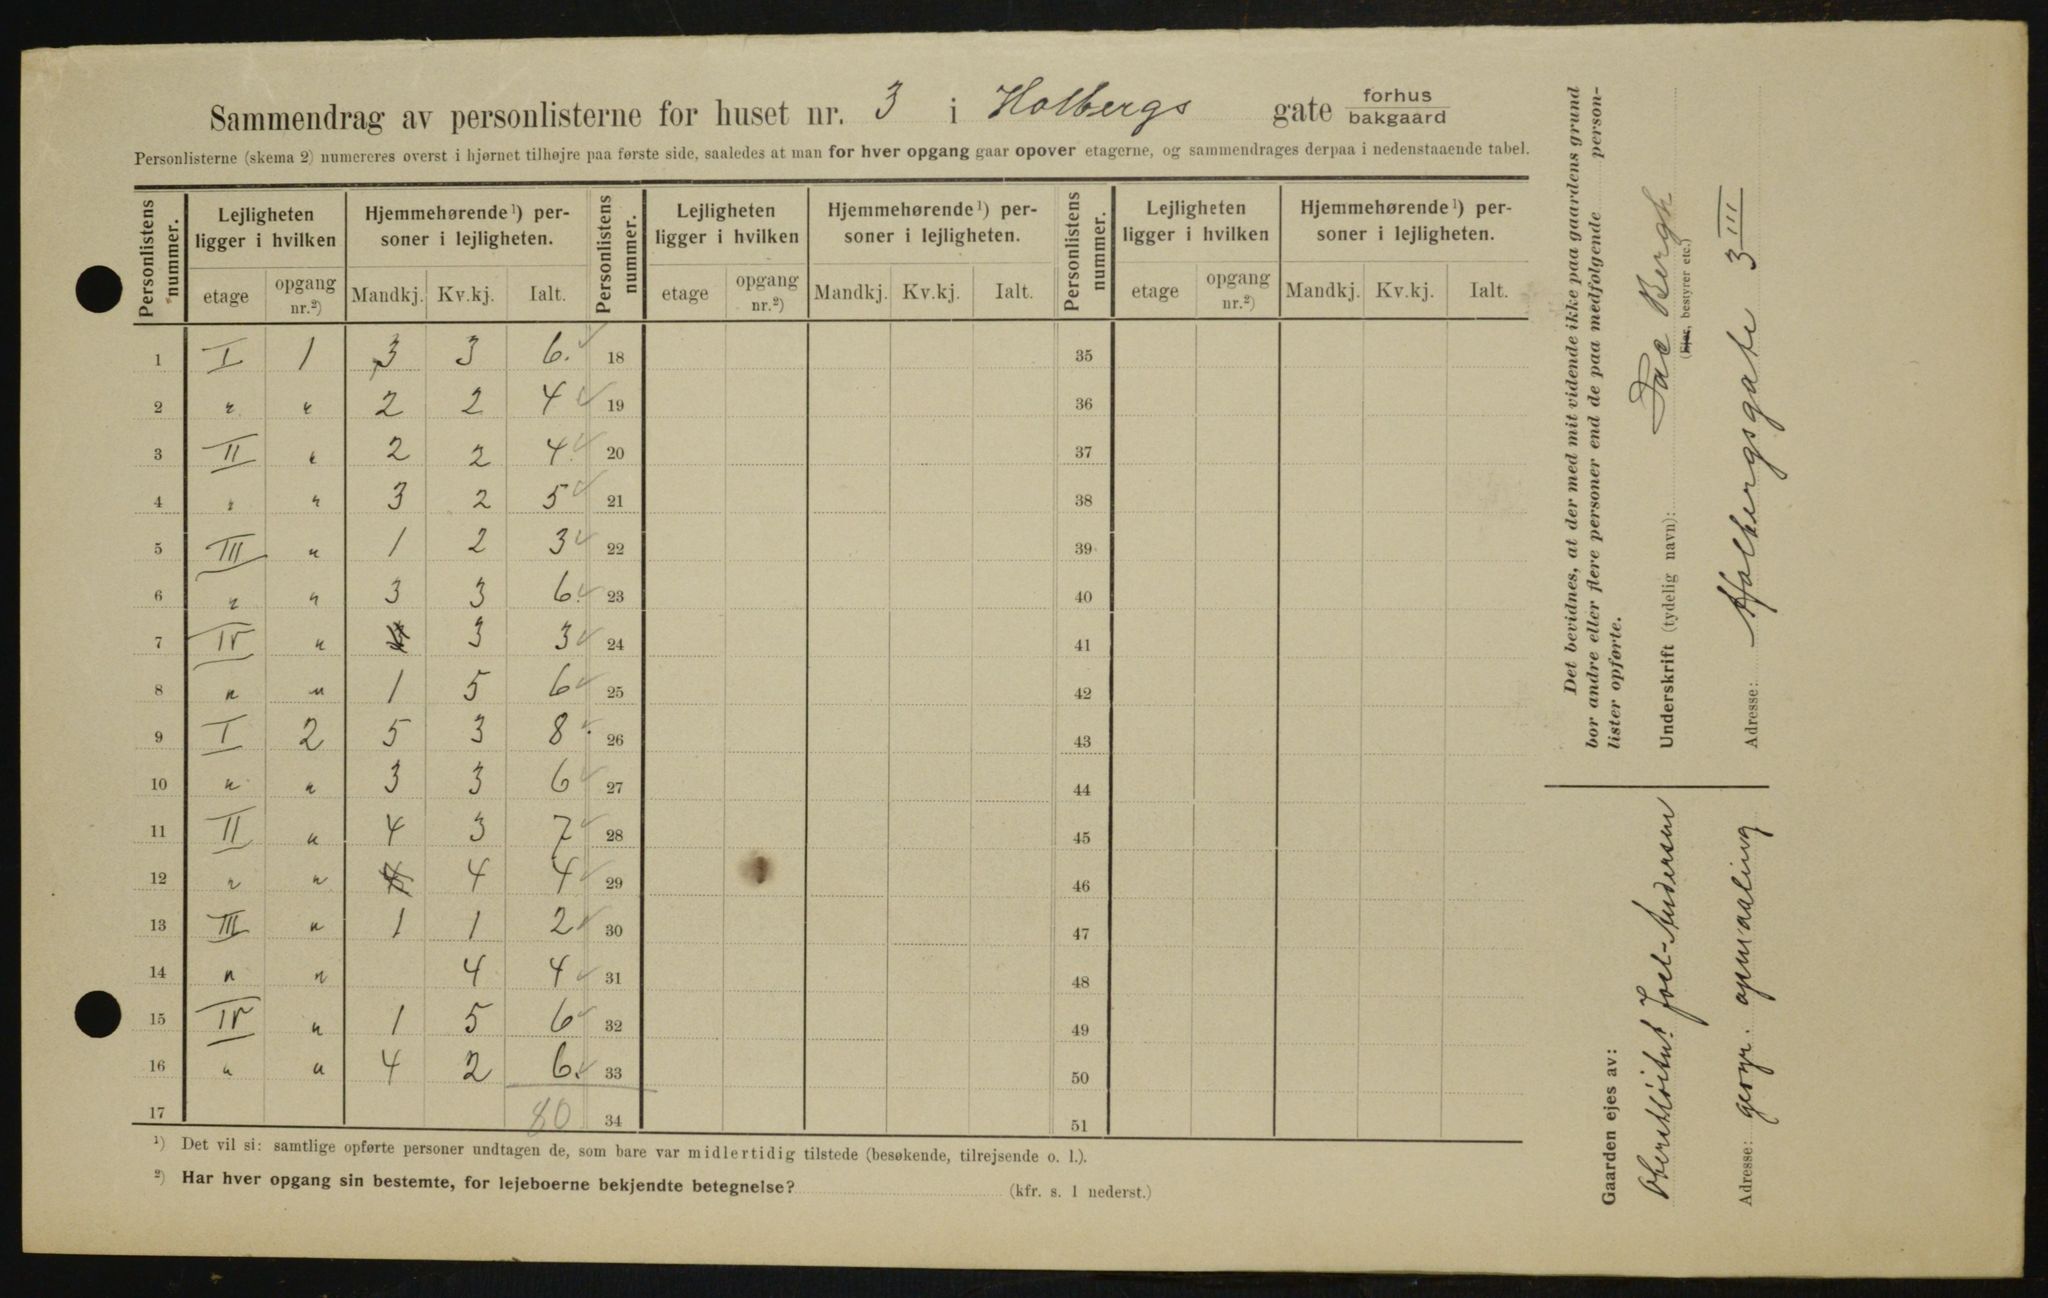 Sammendrag av personlisterne for huset nr. 3 i Holbergs gate forhus bakgaard
Personlisterne (skema 2) numereres øverst i hjørnet tilhøjre paa første side, saaledes at man for hver opgang gaar opover etagerne, og sammendrages derpaa i nedenstaaende tabel.
Personlistens nummer. Lejligheten ligger i hvilken Hjemmehørende ¹) personer i lejligheten. Personlistens nummer. Lejligheten ligger i hvilken Hjemmehørende ¹) personer i lejligheten. Personlistens nummer. Lejligheten ligger i hvilken Hjemmehørende ¹) personer i lejligheten.
etage opgang nr.²) Mandkj. Kv.kj. Ialt. etage opgang nr.²) Mandkj. Kv.kj. Ialt. etage opgang nr.²) Mandkj. Kv.kj. Ialt.
1 I 1 3 3 6. 18 35
2 " " 2 2 4 19 36
3 II " 2 2 4. 20 37
4 " " 3 2 5 21 38
5 III " 1 2 3 22 39
6 " " 3 3 6. 23 40
7 IV " 3 3 24 41
8 " " 1 5 6 25 42
9 I 2 5 3 8 26 43
10 " " 3 3 6 27 44
11 II " 4 3 7 28 45
12 " " 4 4 29 46
13 III " 1 1 2 30 47
14 " " 4 4 31 48
15 IV " 1 5 6 32 49
16 " " 4 2 6. 33 50
17 80 34 51
¹) Det vil si: samtlige opførte personer undtagen de, som bare var midlertidig tilstede (besøkende, tilrejsende o. l.).
²) Har hver opgang sin bestemte, for lejeboerne bekjendte betegnelse? (kfr. s. 1 nederst.)
Det bevidnes, at der med mit vidende ikke paa gaardens grund
bor andre eller flere personer end de paa medfølgende person-
lister opførte.
Underskrift (tydelig navn): Bergh
(Ejer, bestyrer etc.)
Adresse: Holbergsgate 3 III
Gaarden ejes av:
Oberstløitnt Joel-Andersen
Adresse: geogr. opmaaling